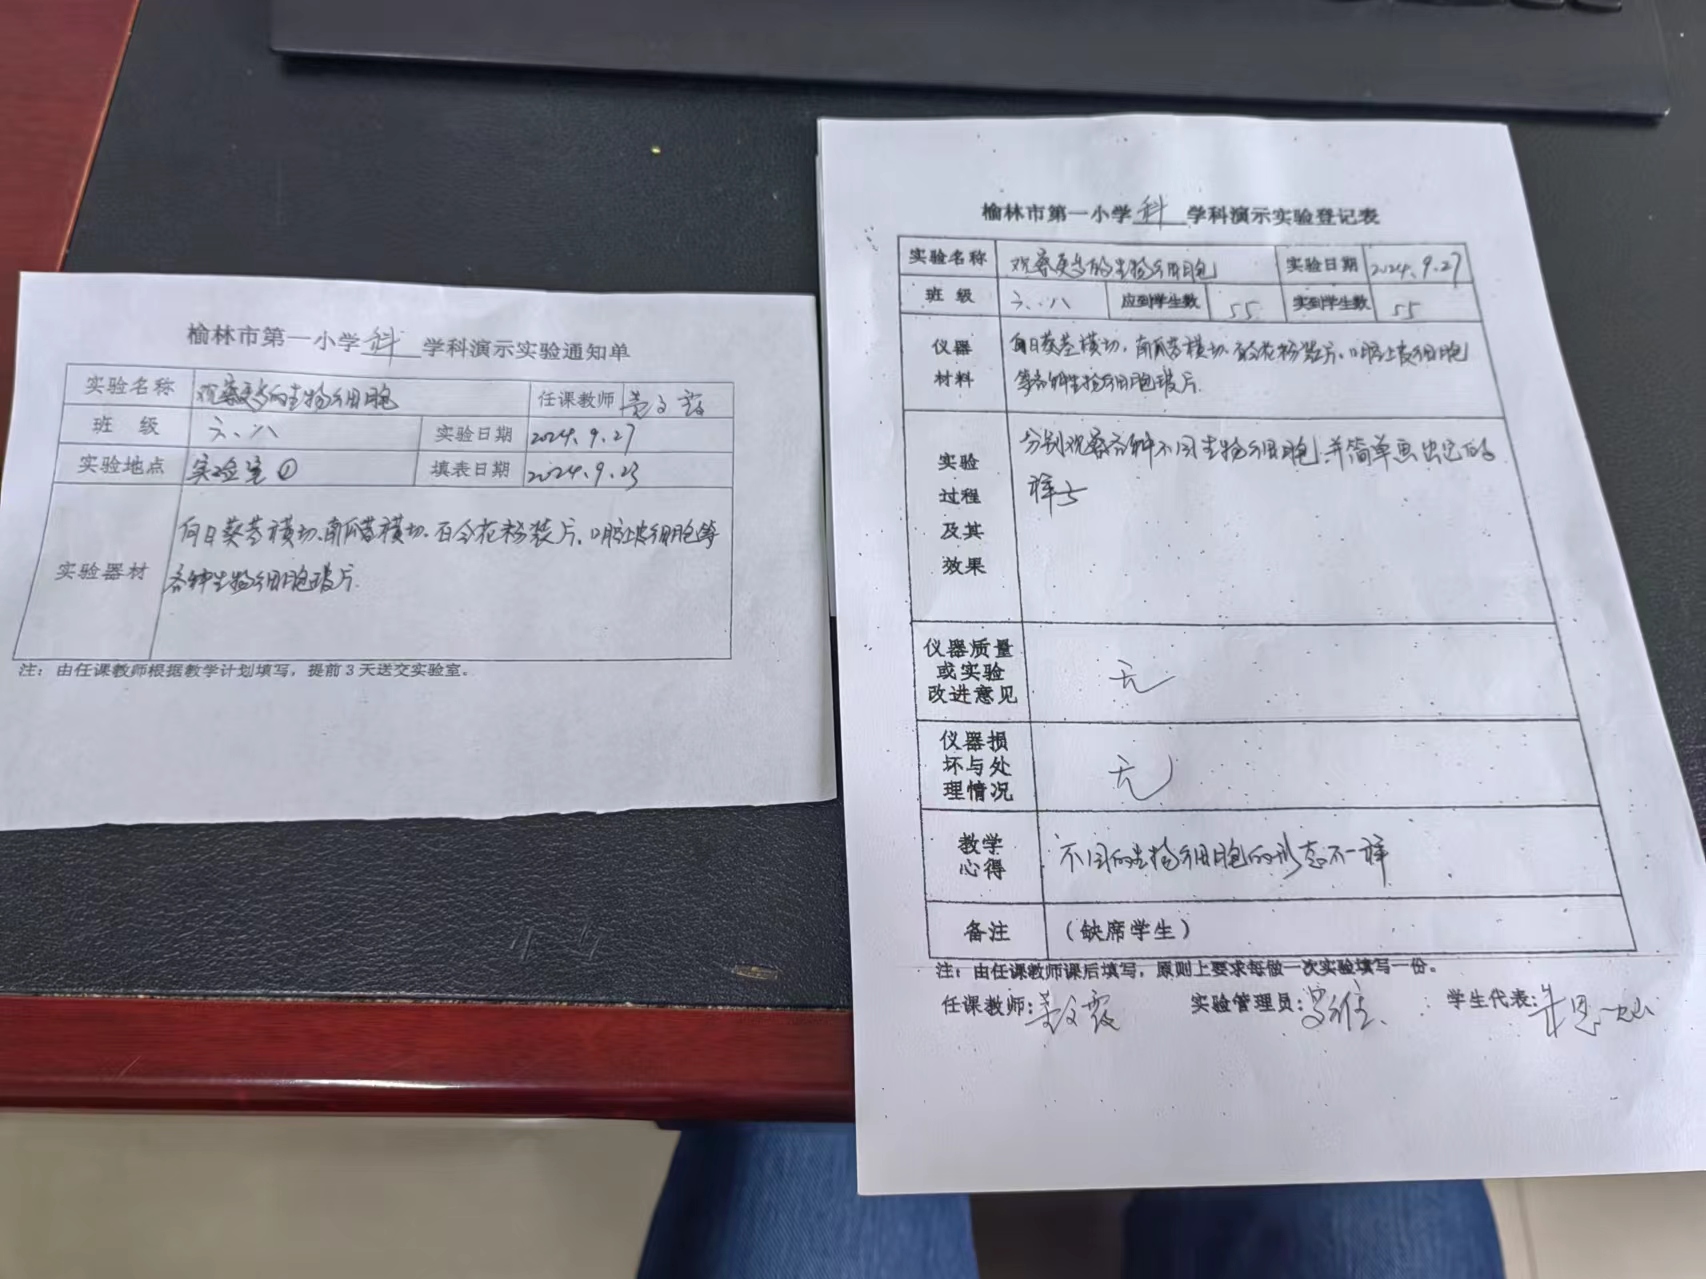 榆林市第一小学科学科演示实验通知单
实验名称 观察更多的生物细胞 任课教师
班 级 六.八 实验日期 2024.9.27
实验地点 实验室① 填表日期 2024.9.23
实验器材
向日葵茎横切、南瓜茎横切、百合花粉装片、口腔上皮细胞等
各种生物细胞玻片
注：由任课教师根据教学计划填写，提前3天送交实验室。
榆林市第一小学科学科演示实验登记表
实验名称 观察更多的生物细胞 实验日期 2024.9.27
班 级 六.八 应到学生数 55 实到学生数 55
仪器 向日葵茎横切、南瓜茎横切、百合花粉装片、口腔上皮细胞
材料 等各种生物细胞玻片
实验 分别观察各种不同生物细胞，并简单画出它的
过程 样子
及其
效果
仪器质量
或实验 无
改进意见
仪器损
坏与处 无
理情况
教学 不同的生物细胞的形态不一样
心得
备注 （缺席学生）
注：由任课教师课后填写，原则上要求每做一次实验填写一份。
任课教师： 实验管理员： 学生代表：